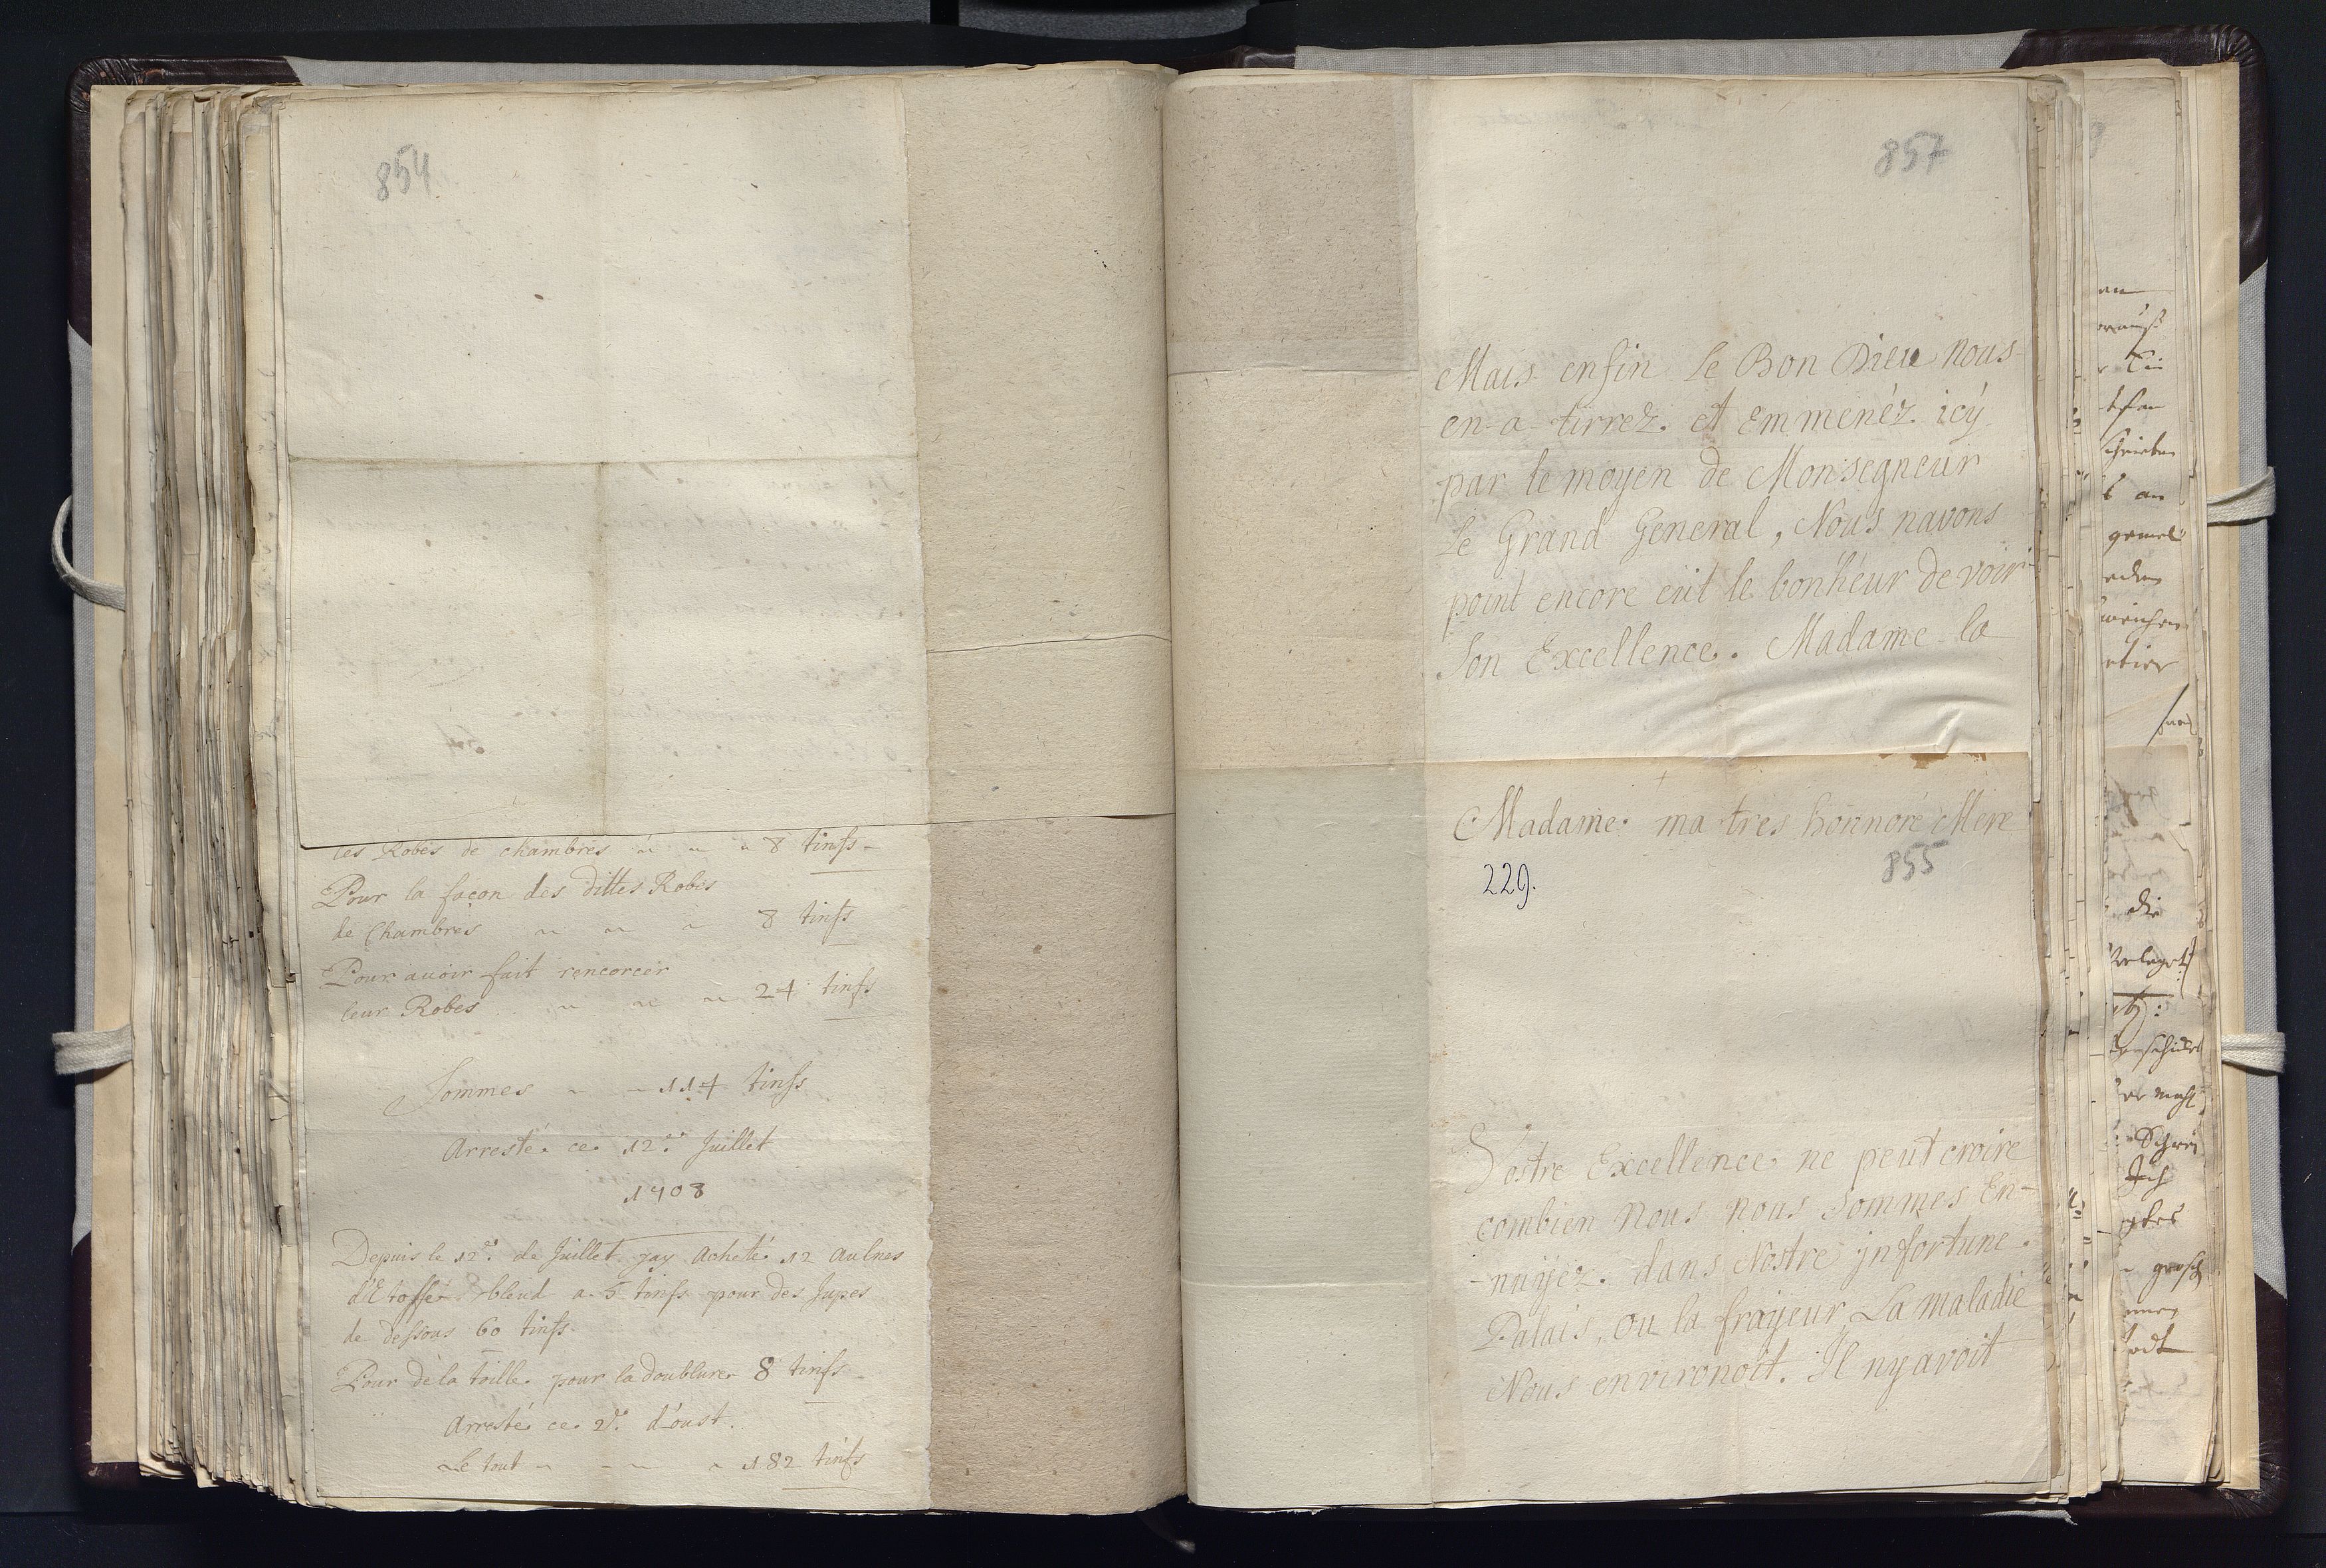 854
ces Robes de chambres 8 tinfs
Pour la façon des dittes Robes
de Chambres 8 tinfs
Pour auoir fait rencorcer
leur Robes 24 tinfs
Sommes 114 tinfs
Arresté ce 12. Juillet
1708
Depuis le 12. de Juillet jay Acheté 12 aulnes
d'Etoffe bleud a 5 tinfs pour des Jupes
de dessous 60 tinfs
Pour de la toille pour la doublure 8 tinfs
Arresté ce 2. d'oust.
Le tout 182 tinfs
857
Mais enfin Le Bon Dieu nous
en-a tirrez. et emmenéz icÿ
par le moyen de Monsegneur
Le Grand General, Nous navons
point encore eüt le bonheur de voir
Son Excellence. Madame la
Madame ma tres honnoré Mere
229.
855
Vostre Excellence ne peut croire
combien Nous nous Sommes En-
-nuÿez. dans Nostre jnfortune.
Palais, ou la fraÿeur, La maladie
Nous environoit. Il nyavoit
an
schrieben
an
die
nicht
Ich